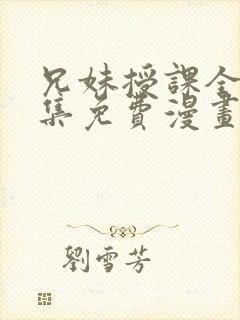 兄妹授課全
集免費漫畫
劉雪芳